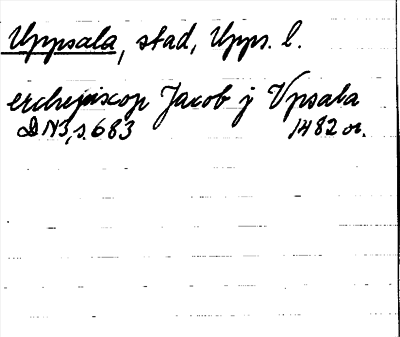 Uppsala, stad, Upps. l.
erchejiscop Jacob j Vpsala
DN3, s. 683 1482 or.